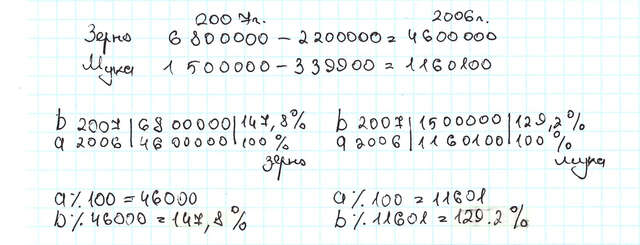 2007г. 2006г.
Зерно 6 800000 - 2200000 = 4600 000
Мука 1 500000 - 339900 = 1160100
b 2007 | 6800000 | 147,8% b 2007 | 1500000 | 129,2%
a 2006 | 4600000 | 100% a 2006 | 1160100 | 100%
зерно мука
a % 100 = 46000 a % 100 = 11601
b % 46000 = 147,8% b % 11601 = 129.2%